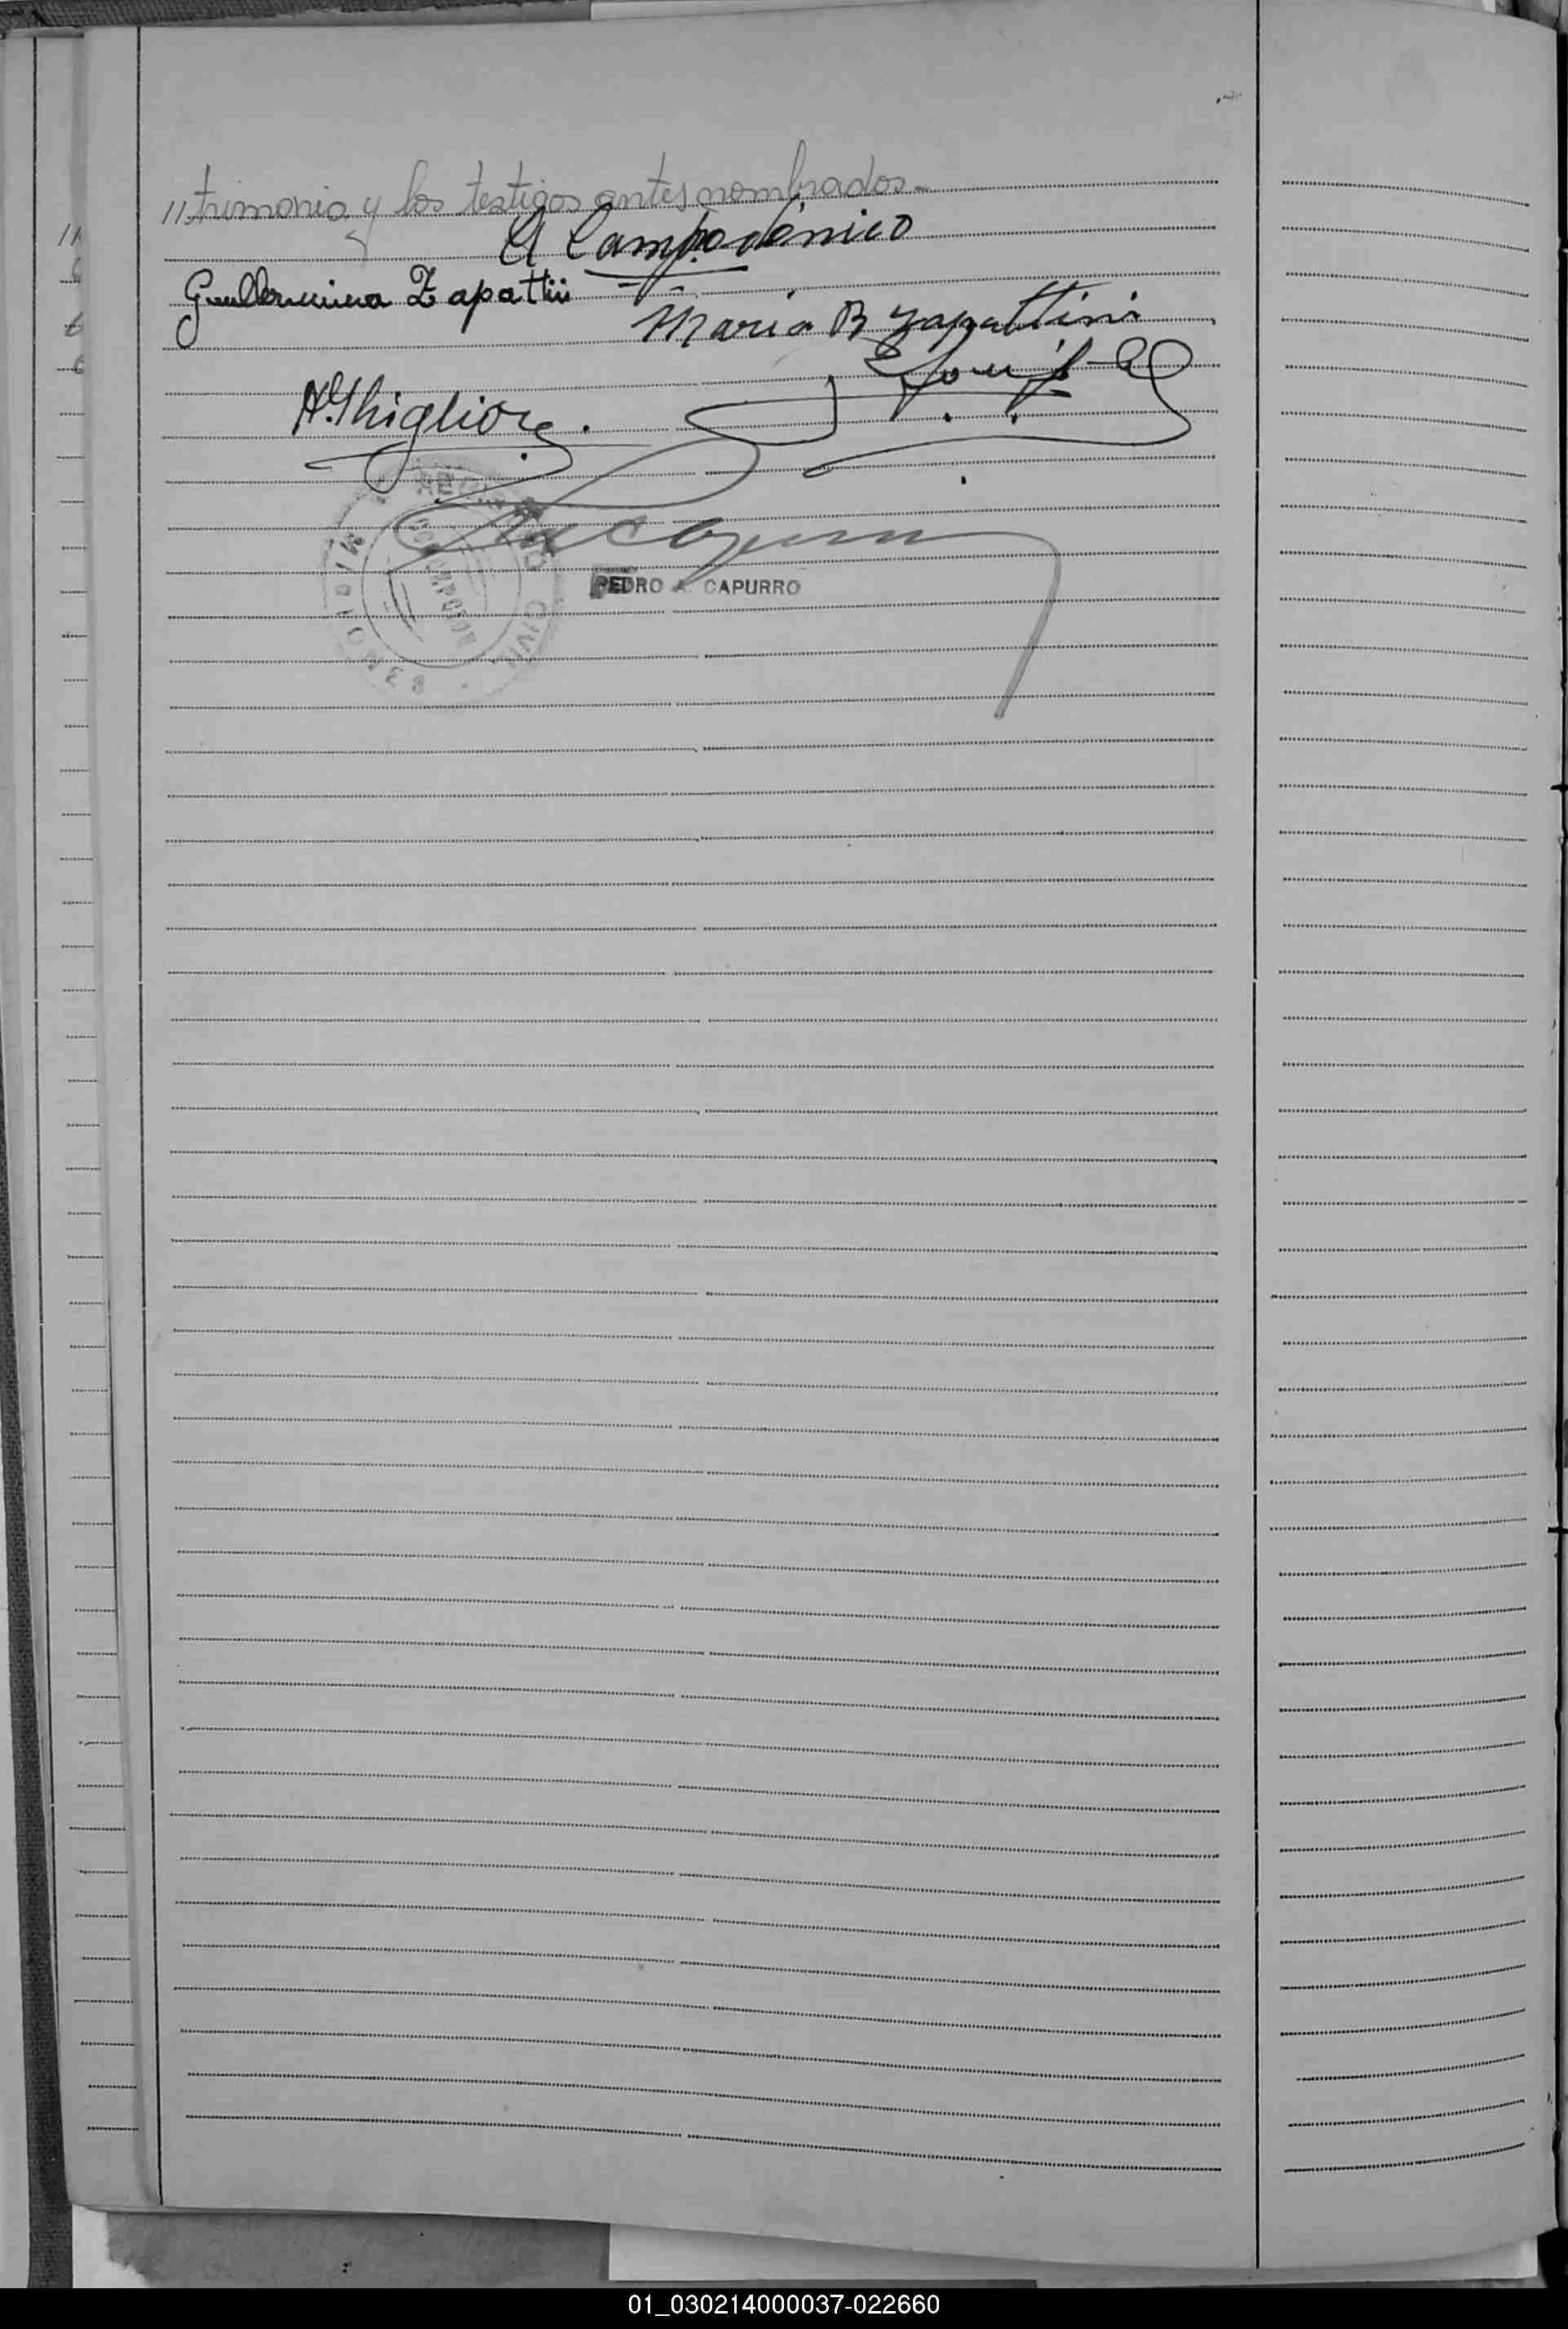 //trimonio y los testigos antes nombrados.-
A Campodónico
Guillermina Zapattini
Maria B Zapattini
A. Ghiglione.
REGISTRO CIVIL
PEDRO A. CAPURRO
01_030214000037-022660